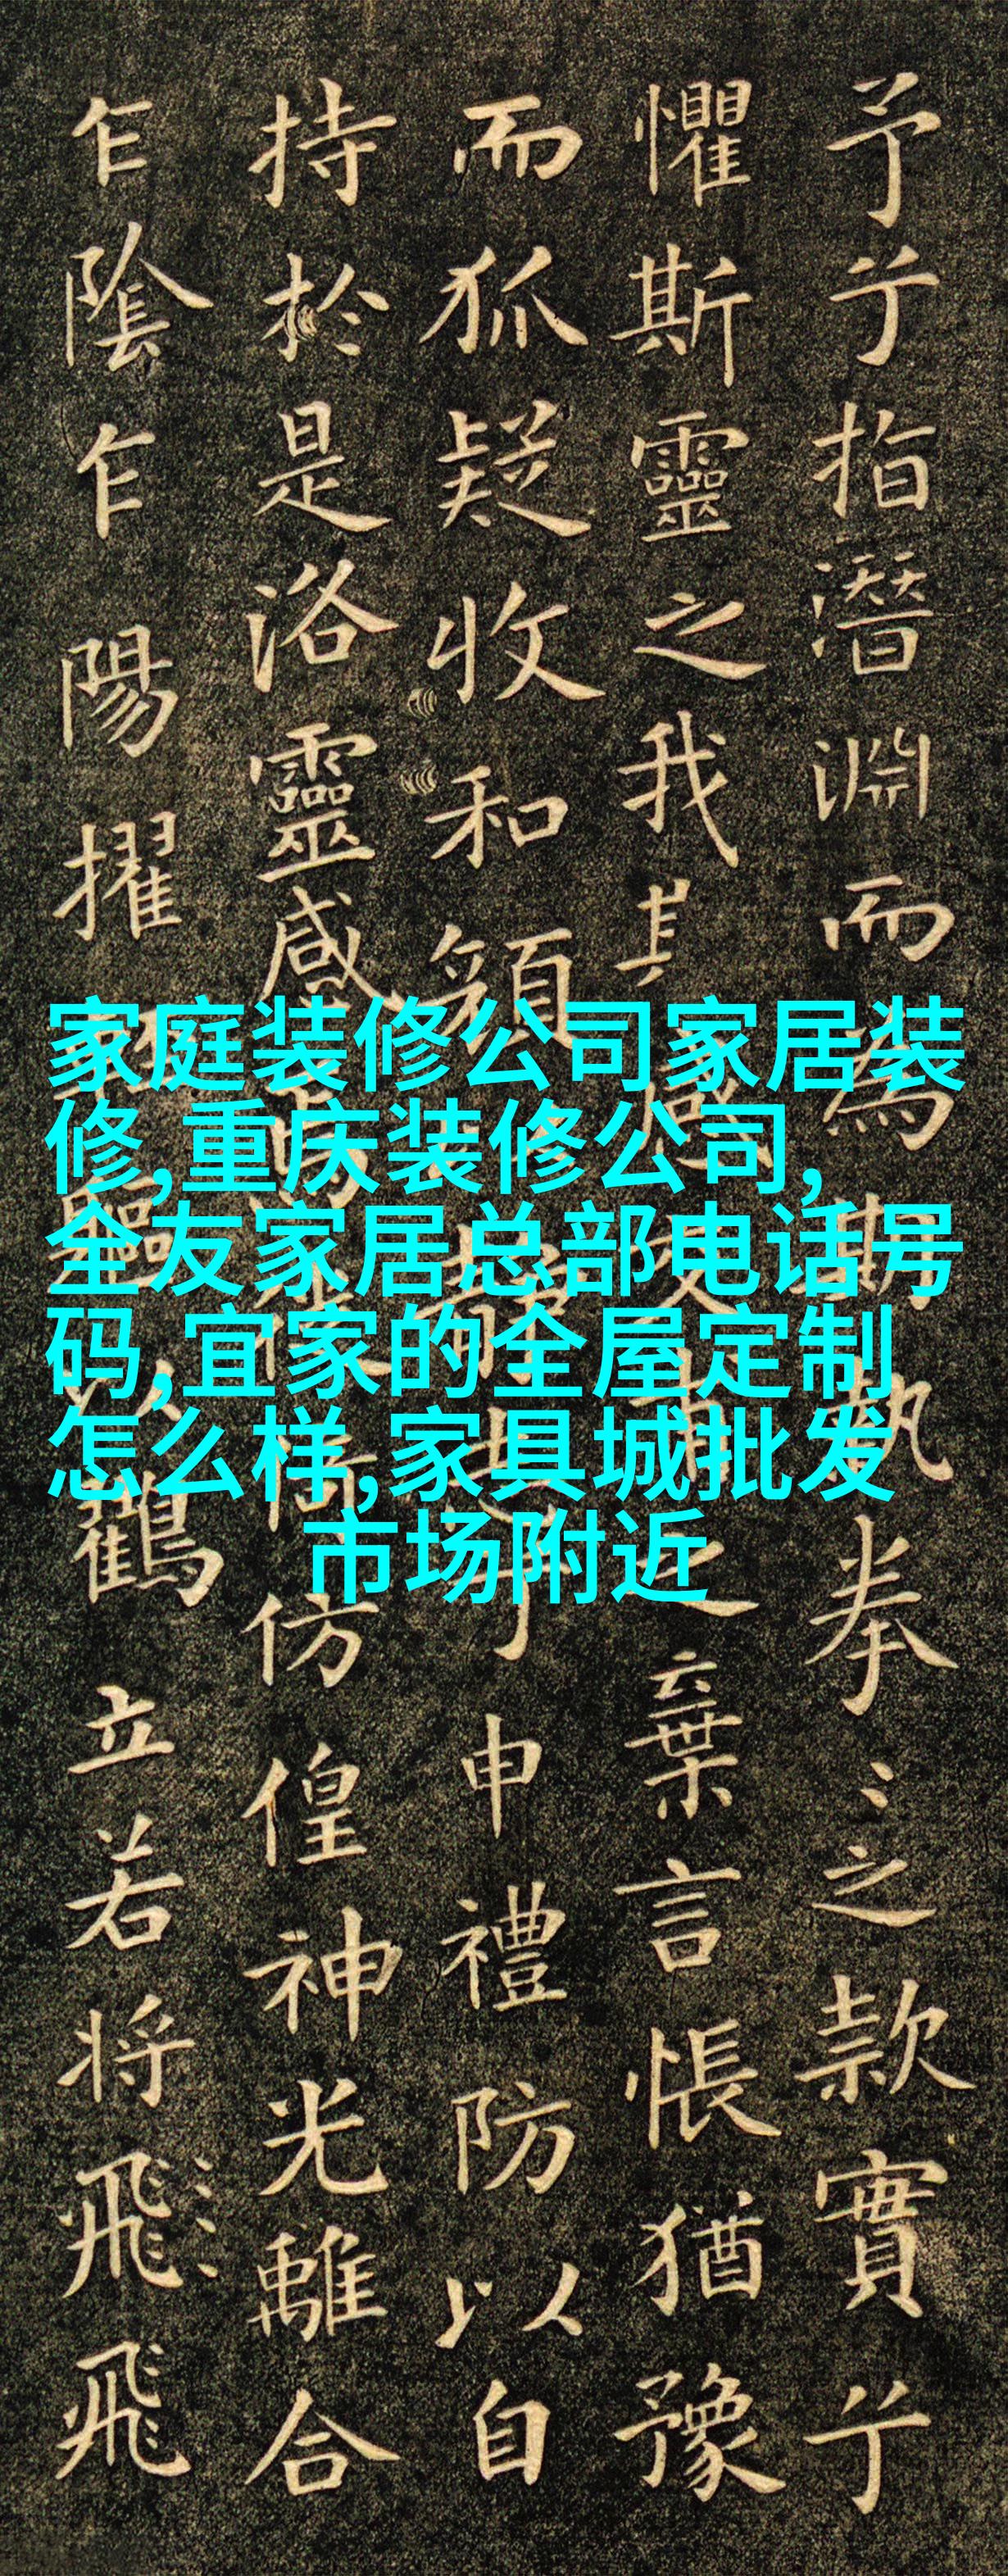 予兮指潛淵而為期執拳〻之款實兮
懼斯靈之我感交甫之棄言悵猶豫
而狐疑收和顏靜志兮申禮防以自
持於是洛靈感焉徙倚仿偟神光離合
乍陰乍陽擢軀以鶴立若將飛飛
家庭装修公司家居装
修,重庆装修公司,
全友家居总部电话号
码,宜家的全屋定制
怎么样,家具城批发
市场附近